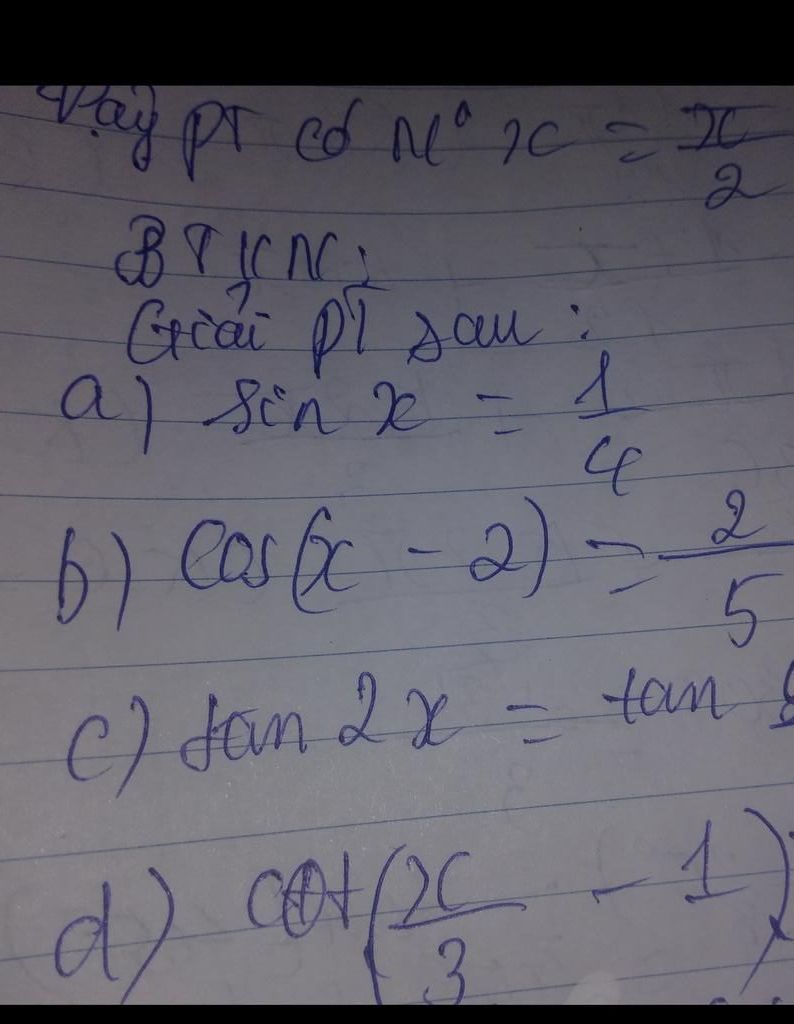 Vậy PT có No x = π/2
BTKNC:
Giải PT sau:
a) sin x = 1/4
b) cos(x - 2) = 2/5
c) tan 2x = tan
d) cot(x/3 - 1)